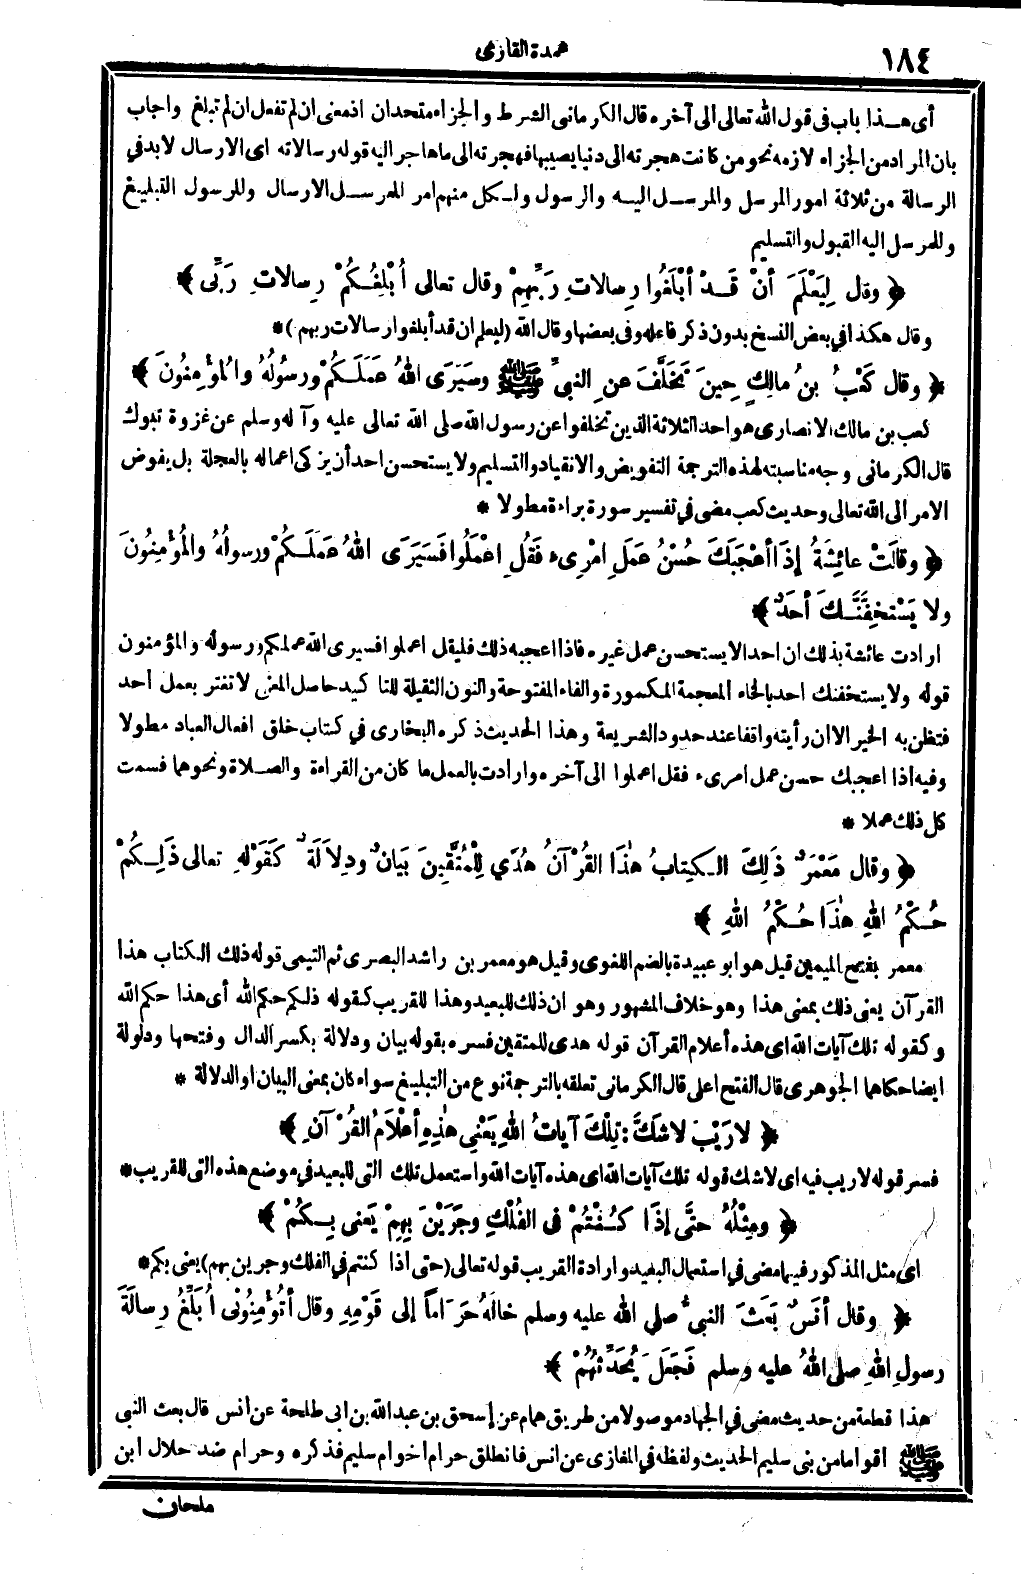 ١٨٤
عمدة القارى
أى هذا باب فى قول الله تعالى الى آخره قال الكرمانى الشرط والجزاء متحدان اذ معنى ان لم تفعل ان لم تبلغ واجاب
بان المراد من الجزاء لازمه نحو من كانت هجرته الى دنيا يصيبها فهجرته الى ما هاجر اليه قوله رسالاته اى الارسال لابد في
الرسالة من ثلاثة امور المرسل والمرسل اليه والرسول ولكل منهم امر للمرسل الارسال وللرسول التبليغ
وللمرسل اليه القبول والتسليم
﴿ وقال لِيَعْلَمَ أنْ قَدْ أبْلَغُوا رِسالاتِ رَبِّهِمْ وقال تعالى أُبْلِغُكُمْ رِسالاتِ رَبِّى ﴾
وقال هكذا في بعض النسخ بدون ذكر فاعله وفى بعضها وقال الله (ليعلم ان قد أبلغوا رسالات ربهم) *
﴿ وقال كَعْبُ بنُ مالِكٍ حِينَ تَخَلَّفَ عنِ النبىِّ ﷺ وسَيَرَى اللهُ عَمَلَكُمْ ورسولُهُ والمُؤْمِنُونَ ﴾
كعب بن مالك الانصارى هو احد الثلاثة الذين تخلفوا عن رسول الله صلى الله تعالى عليه وآله وسلم عن غزوة تبوك
قال الكرمانى وجه مناسبته لهذه الترجمة التفويض والانقياد والتسليم ولا يستحسن احد أن يزكى اعماله بالعجلة بل يفوض
الامر الى الله تعالى وحديث كعب مضى في تفسير سورة براءة مطولا *
﴿ وقالَتْ عائِشَةُ إذَا أعْجَبَكَ حُسْنُ عَمَلِ امْرِىءٍ فَقُلِ اعْمَلُوا فَسَيَرَى اللهُ عَمَلَكُمْ ورسولُهُ والمُؤْمِنُونَ
ولا يَسْتَخِفَّنَّكَ أحَدٌ ﴾
ارادت عائشة بذلك ان احدا لا يستحسن عمل غيره فاذا اعجبه ذلك فليقل اعملوا فسيرى الله عملكم ورسوله والمؤمنون
قوله ولا يستخفنك احد بالخاء المعجمة المكسورة والفاء المفتوحة والنون الثقيلة للتاكيد حاصل المعنى لا تغتر بعمل أحد
فتظن به الخير الا ان رأيته واقفا عند حدود الشريعة وهذا الحديث ذكره البخارى في كتاب خلق افعال العباد مطولا
وفيه اذا اعجبك حسن عمل امرىء فقل اعملوا الى آخره وارادت بالعمل ما كان من القراءة والصلاة ونحوهما فسمت
كل ذلك عملا *
﴿ وقال مَعْمَرٌ ذَلِكَ الكِتابُ هٰذَا القُرْآنُ هُدًي لِلْمُتَّقِينَ بَيانٌ ودِلاَلَةٌ كَقَوْلِهِ تعالى ذَلِكُمْ
حُكْمُ اللهِ هٰذَا حُكْمُ اللهِ ﴾
معمر بفتح الميمين قيل هو ابو عبيدة بالضم اللغوى وقيل هو معمر بن راشد البصرى ثم التيمى قوله ذلك الكتاب هذا
القرآن يعنى ذلك بمعنى هذا وهو خلاف المشهور وهو ان ذلك للبعيد وهذا للقريب كقوله ذلكم حكم الله أى هذا حكم الله
وكقوله تلك آيات الله اى هذه أعلام القرآن قوله هدى للمتقين فسره بقوله بيان ودلالة بكسر الدال وفتحها ودلولة
ايضا حكاهما الجوهرى قال الفتح اعلى قال الكرمانى تعلقه بالترجمة نوع من التبليغ سواء كان بمعنى البيان او الدلالة *
﴿ لا رَيْبَ لا شَكَّ: تِلْكَ آياتُ اللهِ يَعْنِي هٰذِهِ أعْلاَمُ القُرْآنِ ﴾
فسر قوله لا ريب فيه اى لا شك قوله تلك آيات الله اى هذه آيات الله واستعمل تلك التى للبعيد في موضع هذه التى للقريب *
﴿ ومِثْلُهُ حتَّى إذَا كُنْتُمْ فى الفُلْكِ وجَرَيْنَ بِهِمْ يَعْنى بِكُمْ ﴾
اى مثل المذكور فيما مضى في استعمال البعيد وارادة القريب قوله تعالى (حتى اذا كنتم في الفلك وجرين بهم) يعنى بكم *
﴿ وقال أنَسٌ بَعَثَ النبىُّ صلي الله عليه وسلم خالَهُ حَرَاماً إلى قَوْمِهِ وقال أتُؤْمِنُونى أُبَلِّغُ رِسالَةَ
رسولِ اللهِ صلى اللهُ عليه وسلم فَجَعَلَ يُحَدِّثُهُمْ ﴾
هذا قطعة من حديث مضى في الجهاد موصولا من طريق همام عن إسحق بن عبد الله بن ابى طلحة عن انس قال بعث النبى
ﷺ اقواما من بنى سليم الحديث ولفظه في المغازى عن انس فانطلق حرام اخو ام سليم فذكره وحرام ضد حلال ابن
ملحان